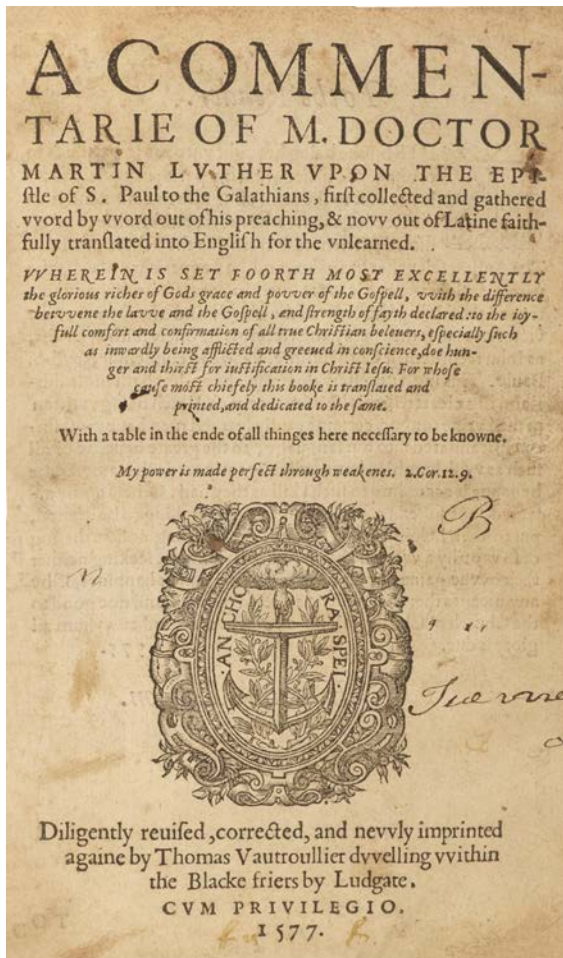 A COMMEN-
TARIE OF M. DOCTOR
MARTIN LVTHER VPON THE EPI-
ſtle of S. Paul to the Galathians, firſt collected and gathered
vvord by vvord out of his preaching, & novv out of Latine faith-
fully tranſlated into Engliſh for the vnlearned.
VVHEREIN IS SET FOORTH MOST EXCELLENTLY
the glorious riches of Gods grace and povver of the Goſpell, vvith the difference
betvvene the lavve and the Goſpell, and ſtrength of fayth declared: to the ioy-
full comfort and confirmation of all true Chriſtian beleuers, eſpecially ſuch
as inwardly being afflicted and greeued in conſcience, doe hun-
ger and thirſt for iuſtification in Chriſt Ieſu. For whoſe
cauſe moſt chiefely this booke is tranſlated and
printed, and dedicated to the ſame.
With a table in the ende of all thinges here neceſſary to be knowne.
My power is made perfect through weakenes. 2. Cor. 12. 9.
B
n
ANCHORA SPEI.
Diligently reuiſed, corrected, and nevvly imprinted
againe by Thomas Vautroullier dvvelling vvithin
the Blacke friers by Ludgate.
CVM PRIVILEGIO.
1577.